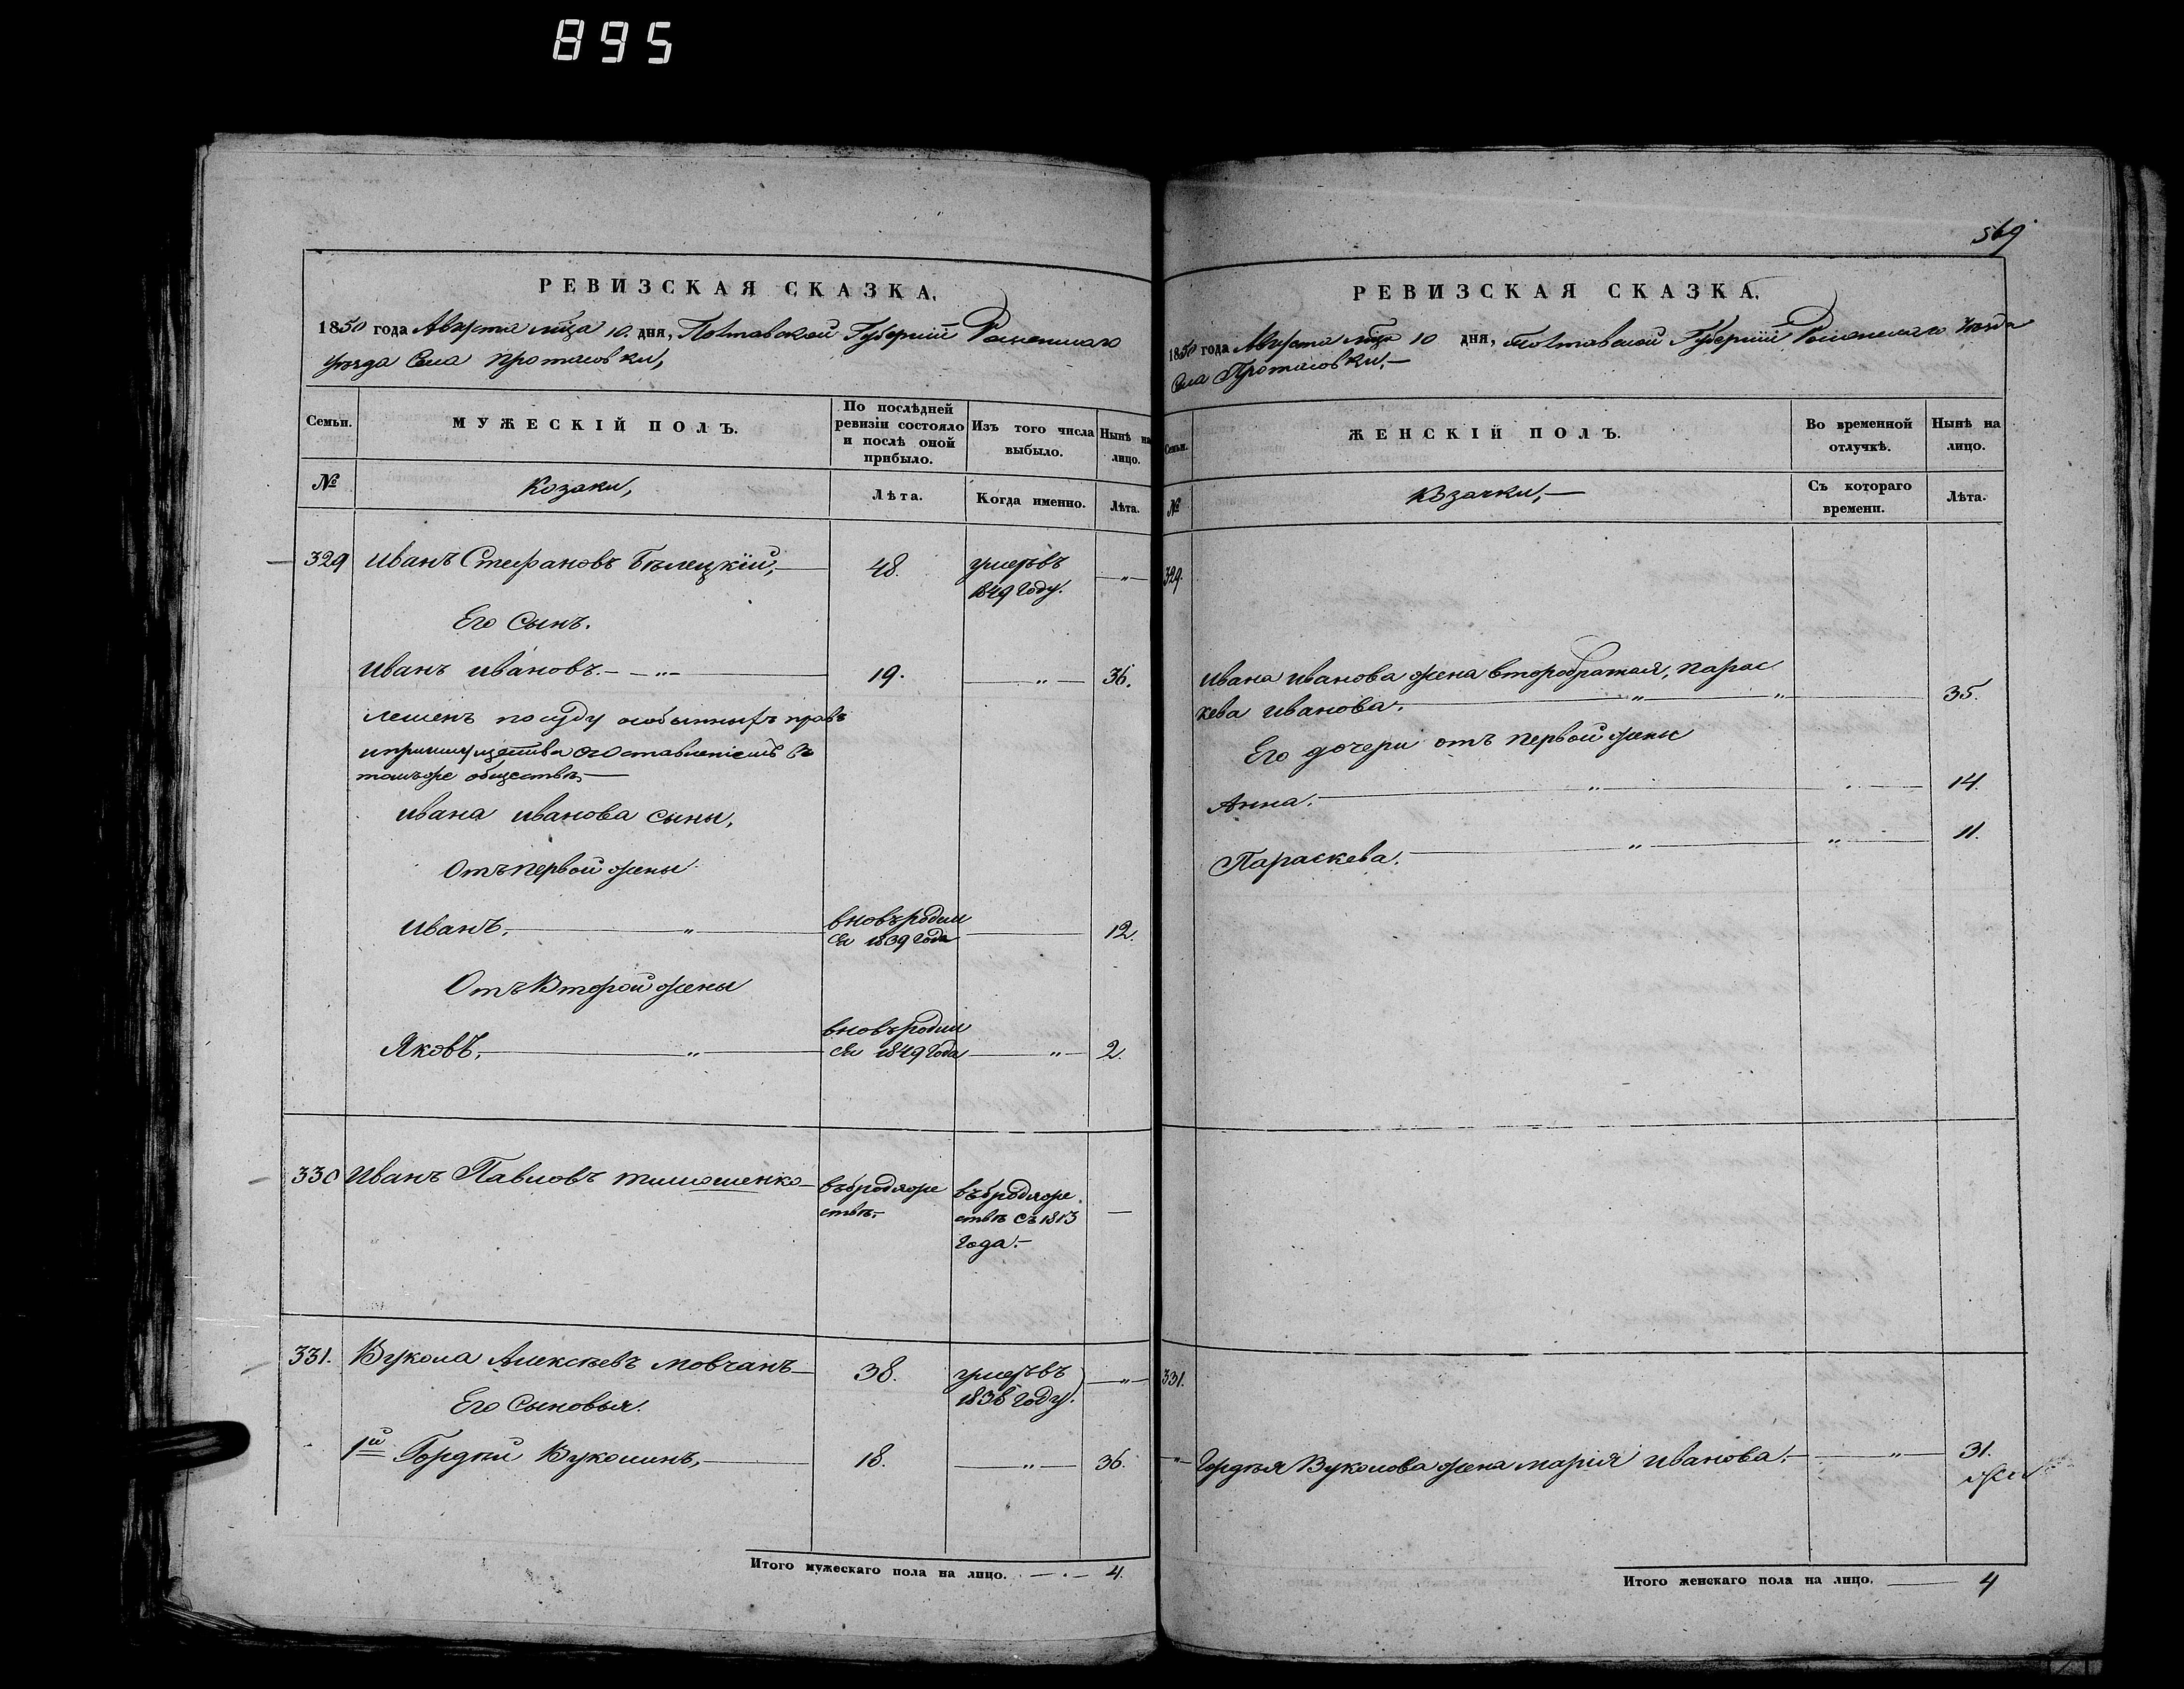 895
РЕВИЗСКАЯ СКАЗКА.
1850 года Августа мѣца 10. дня, Полтавской Губерніи Роменскаго
уѣзда Села Протасовки,
Семьи.
МУЖЕСКІЙ ПОЛЪ.
По послѣдней ревизіи состояло и послѣ оной прибыло.
Изъ того числа выбыло.
Нынѣ на лицо.
№
Козаки,
Лѣта.
Когда именно.
Лѣта.
329 Иванъ Стефановъ Бѣлецкій, 48. умеръ въ
1849 году.
Его Сынъ.
Иванъ Ивановъ. 19. 36.
лешенъ по суду особынныхъ правъ
и примущества съ оставленіемъ въ
томъ же обществѣ,
Ивана Иванова сыны,
Отъ первой жены
Иванъ. вновь родил
ся 1839 года 12.
Отъ Второй жены
Яковъ. вновь родил
ся 1849 года 2.
330 Иванъ Павловъ Тимошенко въ бродяже
ствѣ. въ бродяже
ствѣ съ 1813
года.
331. Вукола Алексѣевъ Мовчанъ 38. умеръ въ
1836 году.
Его Сыновья.
1й Гордѣй Вуколинъ, 18. 36.
Итого мужескаго пола на лицо. 4.
569
РЕВИЗСКАЯ СКАЗКА.
1850 года Августа мѣца 10 дня, Полтавской Губерніи Роменскаго Уѣзда
Села Протасовки.
Семьи.
ЖЕНСКІЙ ПОЛЪ.
Во временной отлучкѣ.
Нынѣ на лицо.
№
Козачки,
Съ котораго времени.
Лѣта.
329.
Ивана Иванова жена второбратая, Парас
кева Иванова. 35.
Его дочери отъ первой жены
Анна. 14.
Параскева. 11.
331.
Гордѣя Вуколова жена Марія Иванова. 31.
Итого женскаго пола на лицо. 4